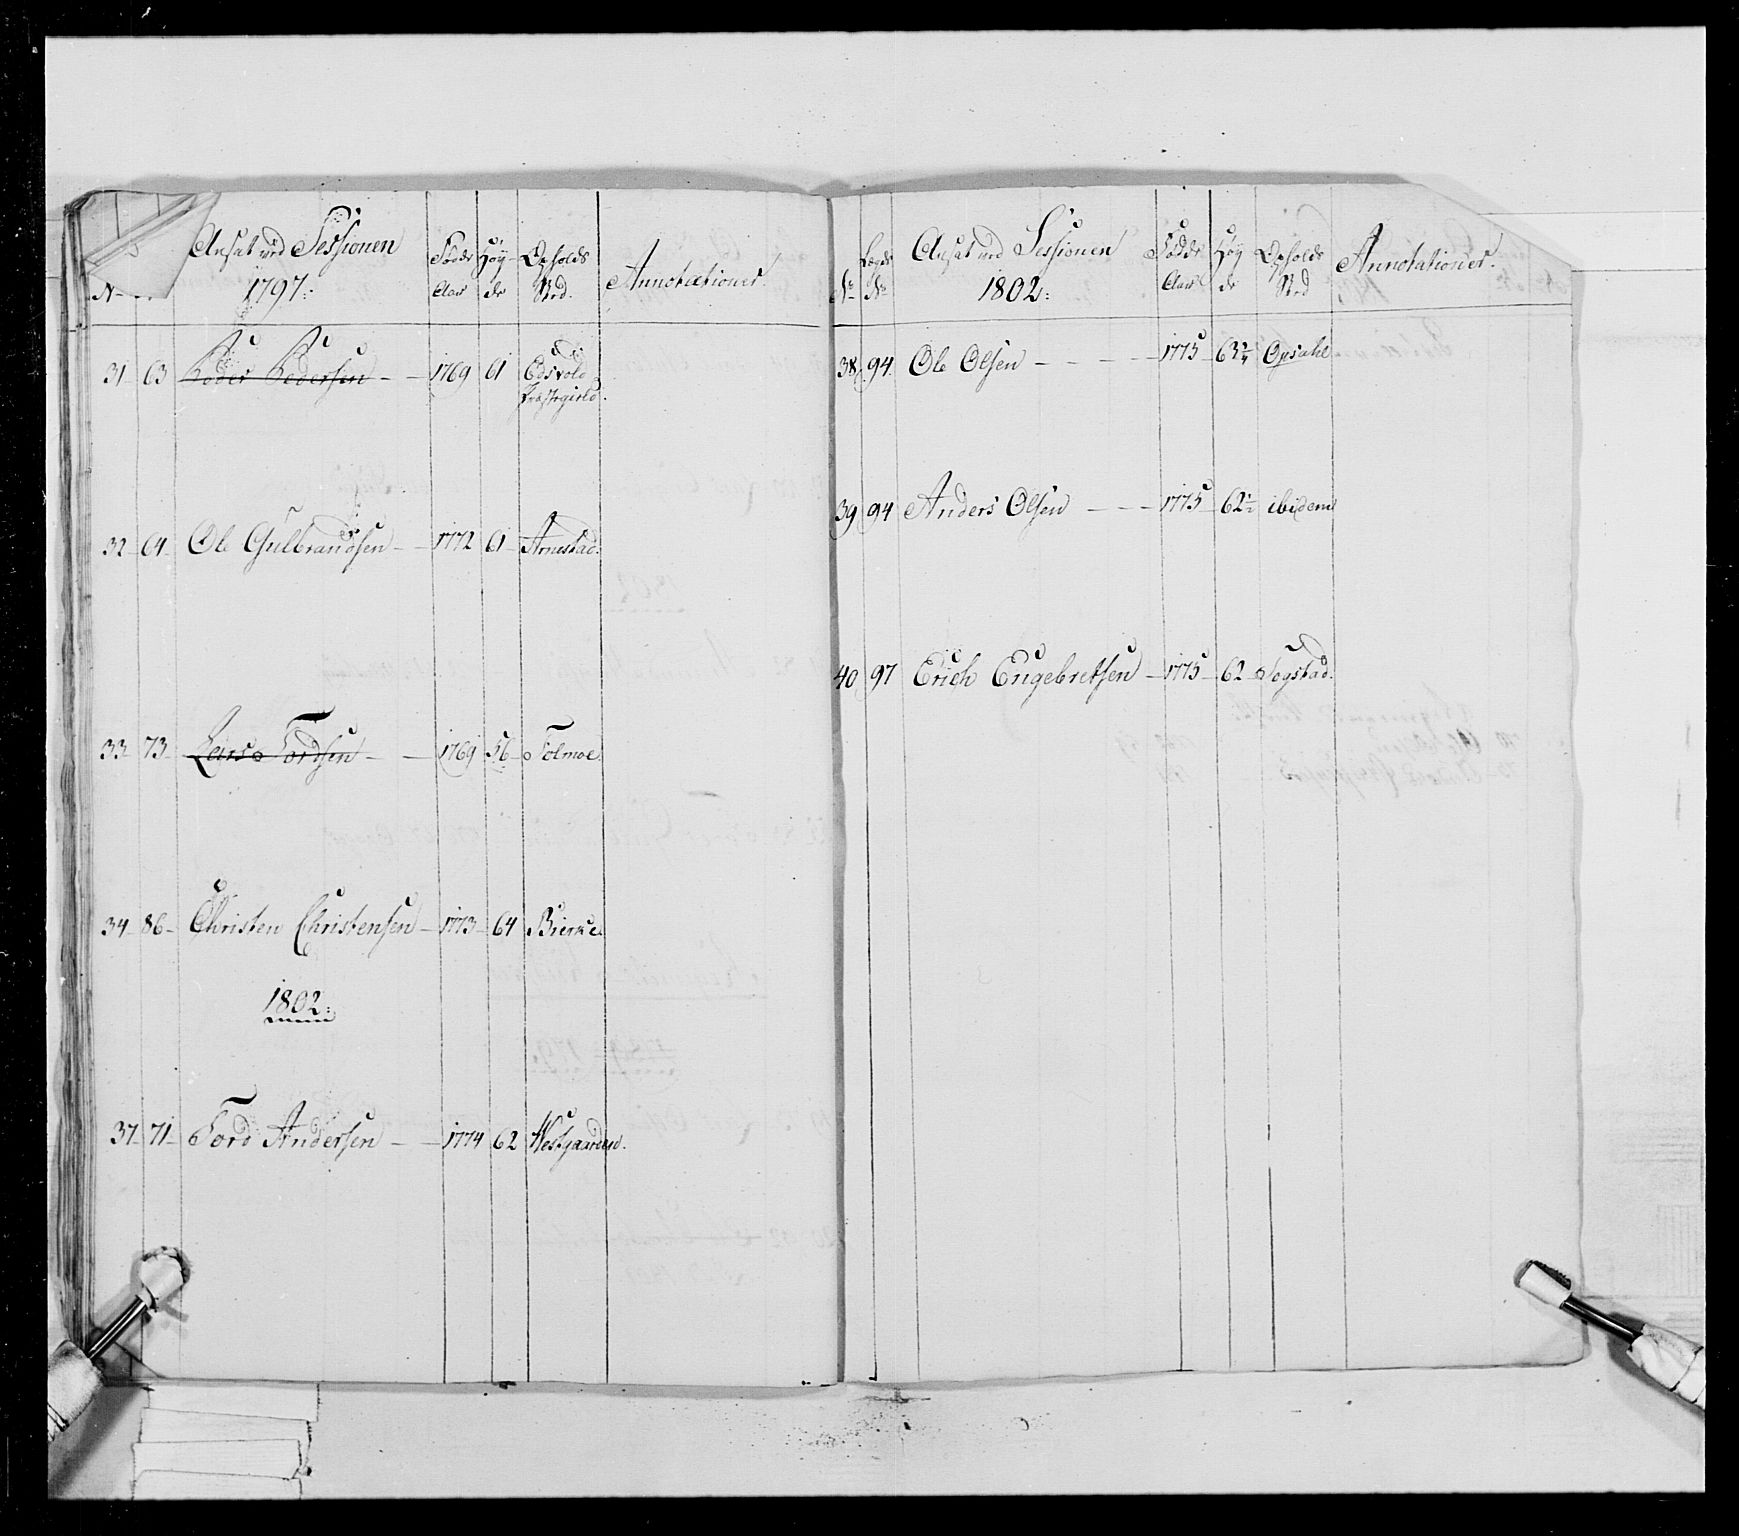 Ansat ved Sessionen
1797:
Føde Aar
Høyde
Opholds Sted.
Annotationer.
31 63 Peder Pedersen - - 1769 61 Edsvold
Præstegield.
32 64 Ole Gulbrandsen - - 1772 61 Arnestad.
33 73 Lars Tordsen - - 1769 56 Tolmoe.
34 86 Christen Christensen - 1773 64 Bierke.
1802:
37 71 Tord Andersen - - 1774 62 Westgaarden.
No
Lægds No
Ansat ved Sessionen
1802:
Fødde Aar
Høyde
Opholds Sted
Annotationer.
38 94 Ole Olsen - - - - 1775 63¾ Opsahl
39 94 Anders Olsen - - - 1775 62½ ibidem
40 97 Erich Engebretsen - 1775 62 Togstad.